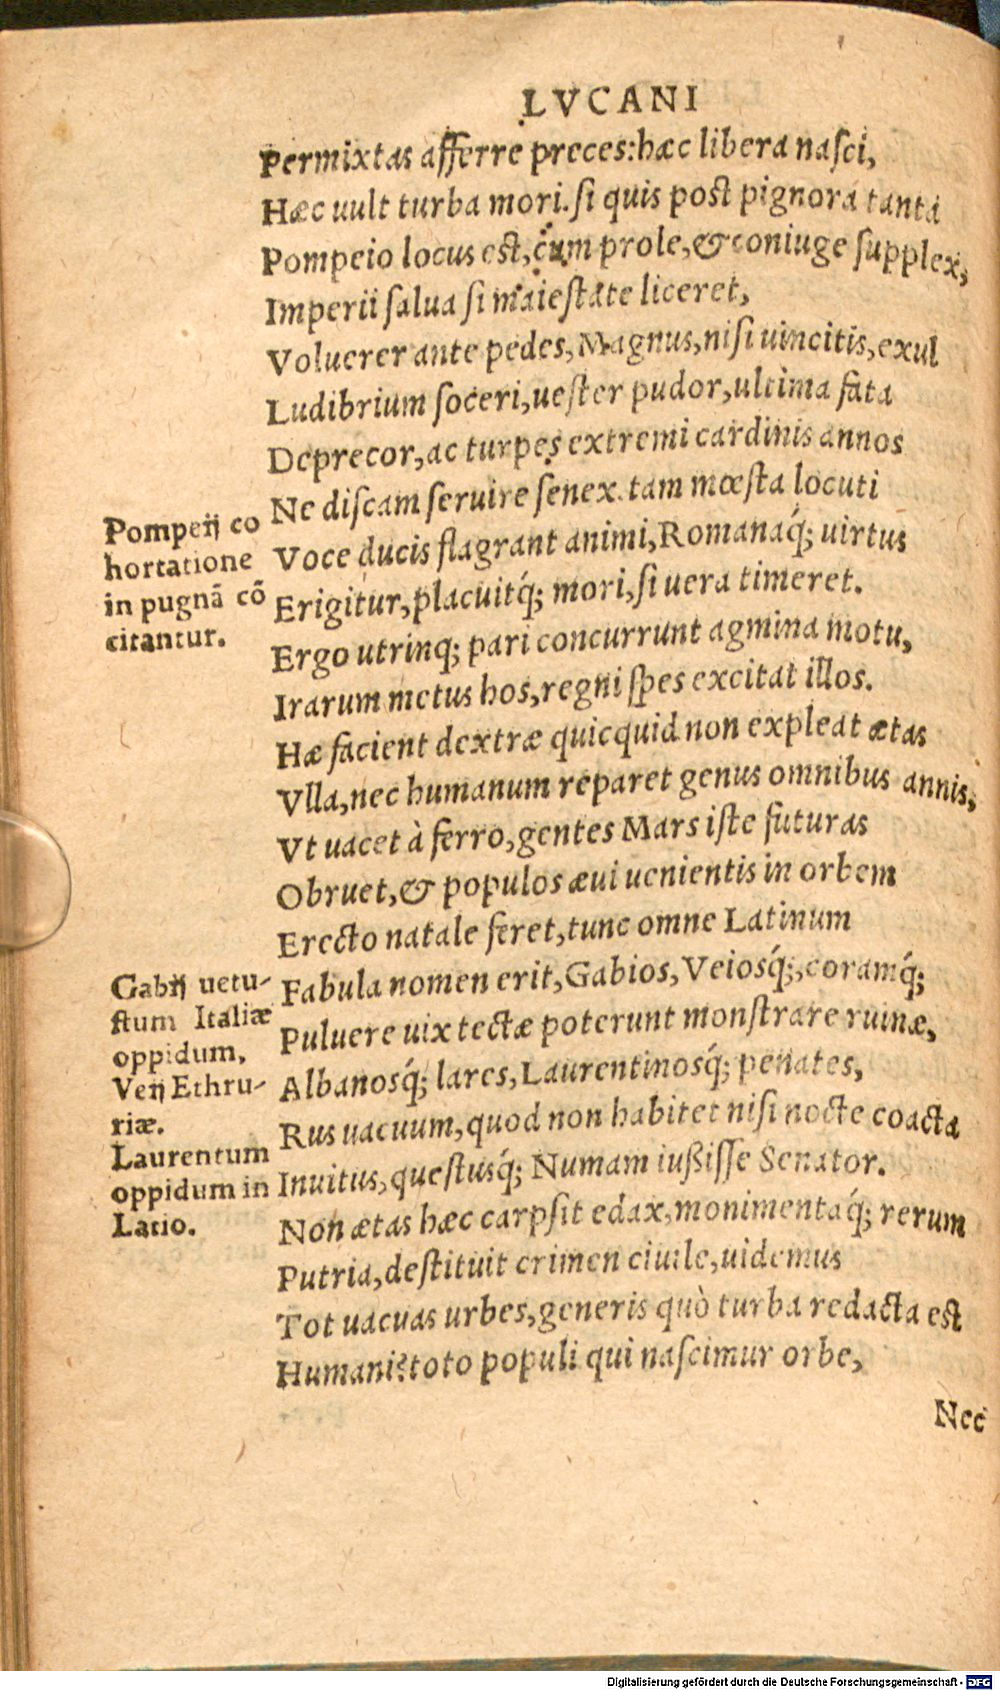 LVCANI
Permixtas afferre preces:hæc libera nasci,
Hæc uult turba mori.si quis post pignora tanta
Pompeio locus est,cum prole,& coniuge supplex,
Imperii salua si maiestate liceret,
Voluerer ante pedes,Magnus,nisi uincitis,exul
Ludibrium soceri,uester pudor,ultima fata
Deprecor,ac turpes extremi cardinis annos
Ne discam seruire senex.tam mœsta locuti
Pompeij co
hortatione
in pugnã cõ
citantur.
Voce ducis flagrant animi,Romanaq́; uirtus
Erigitur,placuitq́; mori,si uera timeret.
Ergo utrinq; pari concurrunt agmina motu,
Irarum metus hos,regni spes excitat illos.
Hæ facient dextræ quicquid non expleat ætas
Vlla,nec humanum reparet genus omnibus annis,
Vt uacet à ferro,gentes Mars iste futuras
Obruet,& populos æui uenientis in orbem
Erecto natale feret,tunc omne Latinum
Gabij uetu-
stum Italiæ
oppidum,
Veij Ethru-
riæ.
Laurentum
oppidum in
Latio.
Fabula nomen erit,Gabios,Veiosq́;,coramq́;
Puluere uix tectæ poterunt monstrare ruinæ,
Albanosq́; lares,Laurentinosq́; penates,
Rus uacuum,quod non habitet nisi nocte coacta
Inuitus,questusq́; Numam iußisse Senator.
Non ætas hæc carpsit edax,monimentaq́; rerum
Putria,destituit crimen ciuile,uidemus
Tot uacuas urbes,generis quò turba redacta est
Humani?toto populi qui nascimur orbe,
Nec
Digitalisierung gefördert durch die Deutsche Forschungsgemeinschaft - DFG